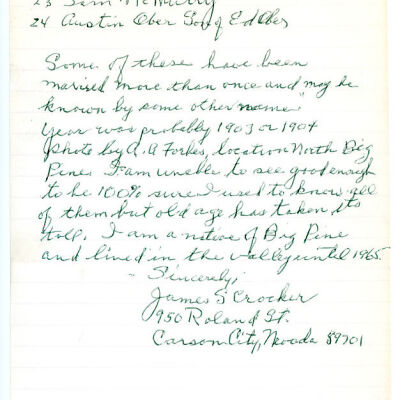 23 Sam McMurry
24 Austin Ober Son of Ed Ober
Some of these have been
maried more than once and may be
known by some other name.
Year was probably 1903 or 1904
photo by A. A Forbes, location North Big
Pine. I am unable to see good enough
to be 100% sure I used to know all
of them but old age has taken its
toll. I am a native of Big Pine
and lived in the valley until 1965.
Sincerely,
James S Crocker
950 Roland St.
Carson City, Nevada 89701